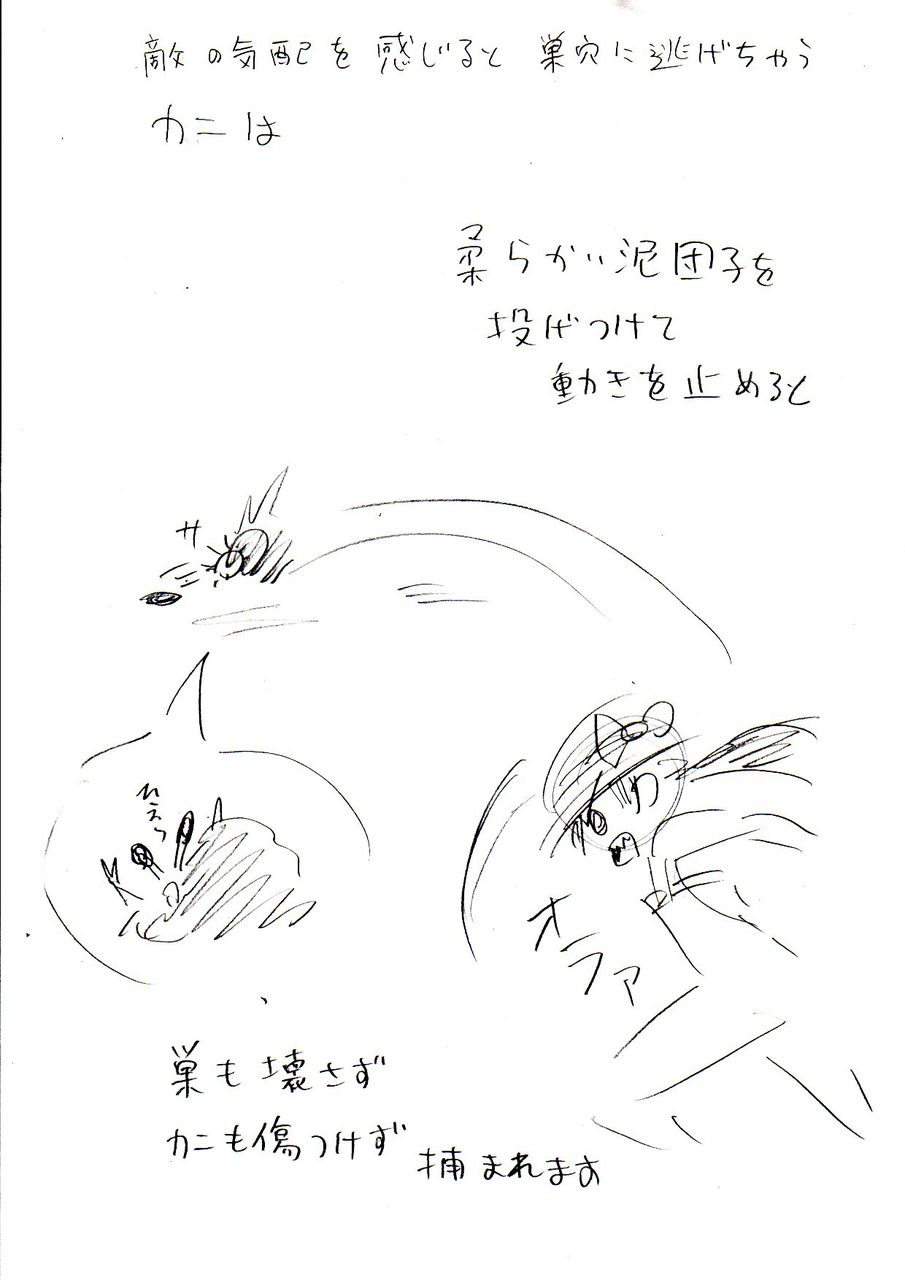 敵の気配を感じると巣穴に逃げちゃう
カニは
柔らかい泥団子を
投げつけて
動きを止めると
サ
オラァ
巣も壊さず
カニも傷つけず
捕まれます